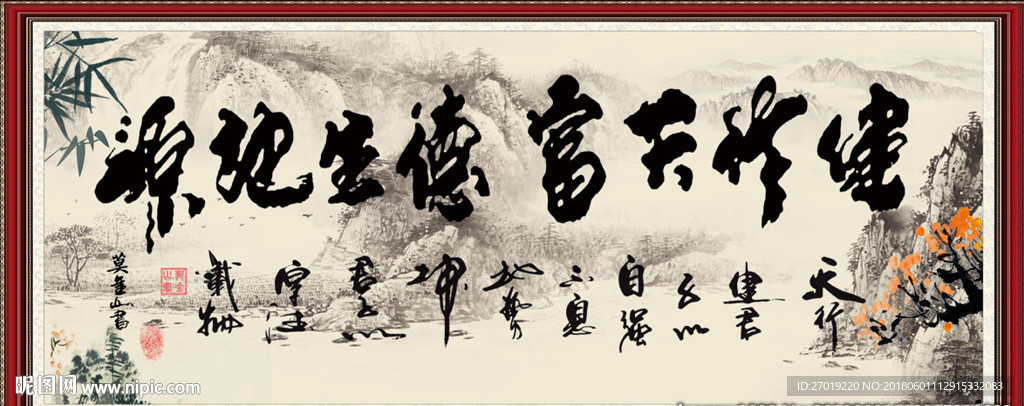 健富德生源
天行
建君
子以
自强
不息
地势
坤
君子以
载物
莫金山书
昵图网 www.nipic.com
ID:27019220 NO:20180601112915332083